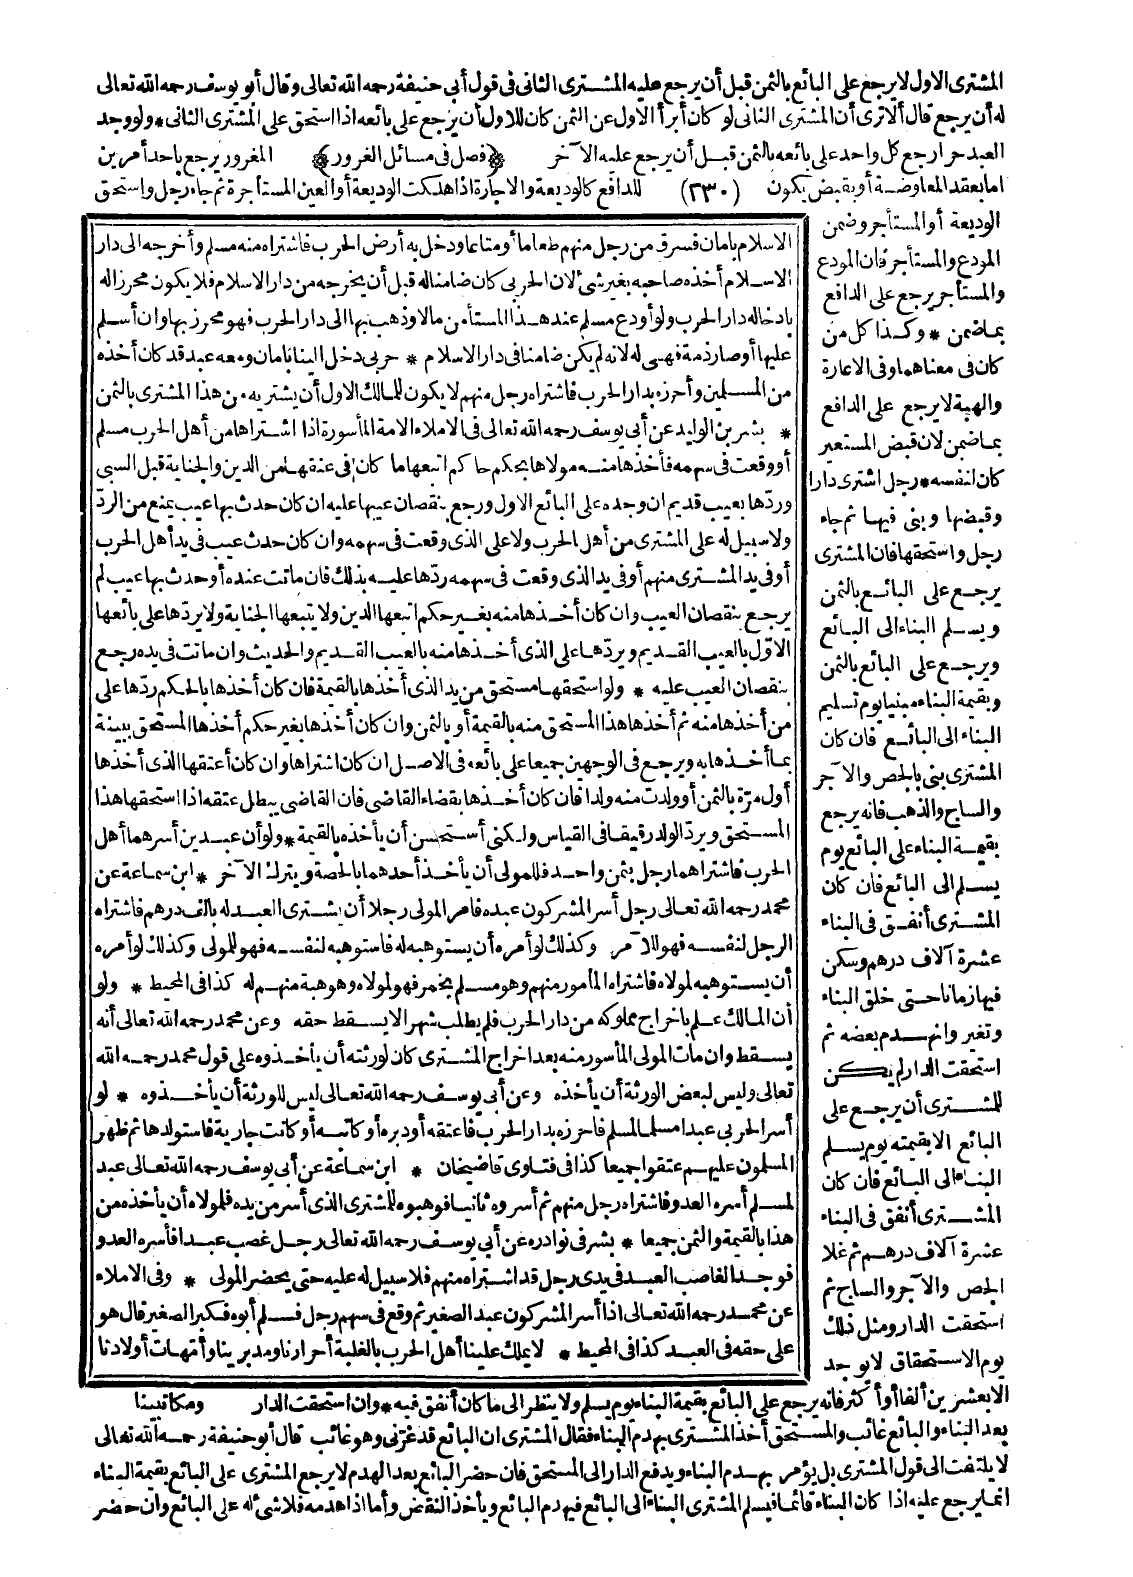 المشترى الاول لا يرجع على البائع بالثمن قبل أن يرجع عليه المشترى الثانى فى قول أبى حنيفة رحمه الله تعالى وقال أبو يوسف رحمه الله تعالى
له أن يرجع قال ألا ترى أن المشترى الثانى لو كان أبرأ الاول عن الثمن كان للاول أن يرجع على بائعه اذا استحق على المشترى الثانى * ولو وجد
العبد حرا رجع كل واحد على بائعه بالثمن قبل أن يرجع عليه الآخر ﴿فصل فى مسائل الغرور﴾ المغرور يرجع باحد أمرين
اما بعقد المعاوضة أو بقبض يكون (٢٣٠) للدافع كالوديعة والاجارة اذا هلكت الوديعة أو العين المستأجرة ثم جاء رجل واستحق
الوديعة أو المستأجر وضمن
المودع والمستأجر فان المودع
والمستأجر يرجع على الدافع
بما ضمن * وكذا كل من
كان فى معناهما وفى الاعارة
والهبة لا يرجع على الدافع
بما ضمن لان قبض المستعير
كان لنفسه * رجل اشترى دارا
وقبضها وبنى فيها ثم جاء
رجل واستحقها فان المشترى
يرجع على البائع بالثمن
ويسلم البناء الى البائع
ويرجع على البائع بالثمن
وبقيمة البناء مبنيا يوم تسليم
البناء الى البائع فان كان
المشترى بنى بالجص والآجر
والساج والذهب فانه يرجع
بقيمة البناء على البائع يوم
يسلم الى البائع فان كان
المشترى أنفق فى البناء
عشرة آلاف درهم وسكن
فيها زمانا حتى خلق البناء
وتغير وانهدم بعضه ثم
استحقت الدار لم يكن
للمشترى أن يرجع على
البائع الا بقيمته يوم يسلم
البناء الى البائع فان كان
المشترى أنفق فى البناء
عشرة آلاف درهم ثم غلا
الجص والآجر والساج ثم
استحقت الدار ومثل ذلك
يوم الاستحقاق لا يوجد
الاسلام بامان فسرق من رجل منهم طعاما أو متاعا ودخل به أرض الحرب فاشتراه منه مسلم وأخرجه الى دار
الاسلام أخذه صاحبه بغير شئ لان الحربى كان ضامنا له قبل أن يخرجه من دار الاسلام فلا يكون محرزا له
بادخاله دار الحرب ولو أودع مسلم عند هذا المستأمن مالا وذهب بها الى دار الحرب فهو محرز بها وان أسلم
عليها أو صار ذمة فهى له لانه لم يكن ضامنا فى دار الاسلام * حربى دخل الينا بامان ومعه عبد قد كان أخذه
من المسلمين وأحرزه بدار الحرب فاشتراه رجل منهم لا يكون للمالك الاول أن يشتريه من هذا المشترى بالثمن
* بشر بن الوليد عن أبى يوسف رحمه الله تعالى فى الاملاء الامة المأسورة اذا اشتراها من أهل الحرب مسلم
أو وقعت فى سهمه فأخذها منه مولاها بحكم حاكم اتبعها ما كان فى عنقها من الدين والجناية قبل السبى
وردّها بعيب قديم ان وجده على البائع الاول ورجع بنقصان عيبها عليه ان كان حدث بها عيب يمنع من الردّ
ولا سبيل له على المشترى من أهل الحرب ولا على الذى وقعت فى سهمه وان كان حدث عيب فى يد أهل الحرب
أو فى يد المشترى منهم أو فى يد الذى وقعت فى سهمه ردّها عليه بذلك فان ماتت عنده أو حدث بها عيب لم
يرجع بنقصان العيب وان كان أخذها منه بغير حكم اتبعها الدين ولا يتبعها الجناية ولا يردّها على بائعها
الاوّل بالعيب القديم ويردّها على الذى أخذها منه بالعيب القديم والحديث وان ماتت فى يده رجع
بنقصان العيب عليه * ولو استحقها مستحق من يد الذى أخذها بالقيمة فان كان أخذها بالحكم ردّها على
من أخذها منه ثم أخذها هذا المستحق منه بالقيمة أو بالثمن وان كان أخذها بغير حكم أخذها المستحق ببينة
بما أخذها به ويرجع فى الوجهين جميعا على بائعه فى الاصل ان كان اشتراها وان كان أعتقها الذى أخذها
أول مرّة بالثمن أو ولدت منه ولدا فان كان أخذها بقضاء القاضى فان القاضى يبطل عتقه اذا استحقها هذا
المستحق ويردّ الولد رقيقا فى القياس ولكنى أستحسن أن يأخذه بالقيمة * ولو أن عبدين أسرهما أهل
الحرب فاشتراهما رجل بثمن واحد فللمولى أن يأخذ أحدهما بالحصة ويترك الآخر * ابن سماعة عن
محمد رحمه الله تعالى رجل أسر المشركون عبده فامر المولى رجلا أن يشترى العبد له بالف درهم فاشتراه
الرجل لنفسه فهو للآمر وكذلك لو أمره أن يستوهبه له فاستوهبه لنفسه فهو للمولى وكذلك لو أمره
أن يستوهبه لمولاه فاشتراه المأمور منهم وهو مسلم بخمر فهو لمولاه وهو هبة منهم له كذا فى المحيط * ولو
أن المالك علم باخراج مملوكه من دار الحرب فلم يطلب شهرا لا يسقط حقه وعن محمد رحمه الله تعالى أنه
يسقط وان مات المولى المأسور منه بعد اخراج المشترى كان لورثته أن يأخذوه على قول محمد رحمه الله
تعالى وليس لبعض الورثة أن يأخذه وعن أبى يوسف رحمه الله تعالى ليس للورثة أن يأخذوه * لو
أسر الحربى عبدا مسلما لمسلم فاحرزه بدار الحرب فاعتقه أو دبره أو كاتبه أو كانت جارية فاستولدها ثم ظهر
المسلمون عليهم عتقوا جميعا كذا فى فتاوى قاضيخان * ابن سماعة عن أبى يوسف رحمه الله تعالى عبد
لمسلم أسره العدو فاشتراه رجل منهم ثم أسروه ثانيا فوهبوه للمشترى الذى أسر من يده فلمولاه أن يأخذه من
هذا بالقيمة والثمن جميعا * بشر فى نوادره عن أبى يوسف رحمه الله تعالى رجل غصب عبدا فأسره العدو
فوجد الغاصب العبد فى يدى رجل قد اشتراه منهم فلا سبيل له عليه حتى يحضر المولى * وفى الاملاء
عن محمد رحمه الله تعالى اذا أسر المشركون عبد الصغير ثم وقع فى سهم رجل فسلم أبوه فكبر الصغير قال هو
على حقه فى العبد كذا فى المحيط * لا يملك علينا أهل الحرب بالغلبة أحرارنا ومدبرينا وأمهات أولادنا
ومكاتبينا
الا بعشرين ألفا أو أكثر فانه يرجع على البائع بقيمة البناء يوم يسلم ولا ينظر الى ما كان أنفق فيه * وان استحقت الدار
بعد البناء والبائع غائب والمستحق أخذ المشترى بهدم البناء فقال المشترى ان البائع قد غرّنى وهو غائب قال أبو حنيفة رحمه الله تعالى
لا يلتفت الى قول المشترى بل يؤمر بهدم البناء ويدفع الدار الى المستحق فان حضر البائع بعد الهدم لا يرجع المشترى على البائع بقيمة البناء
انما يرجع عليه اذا كان البناء قائما فيسلم المشترى البناء الى البائع فيهدم البائع ويأخذ النقض وأما اذا هدمه فلا شئ له على البائع وان حضر